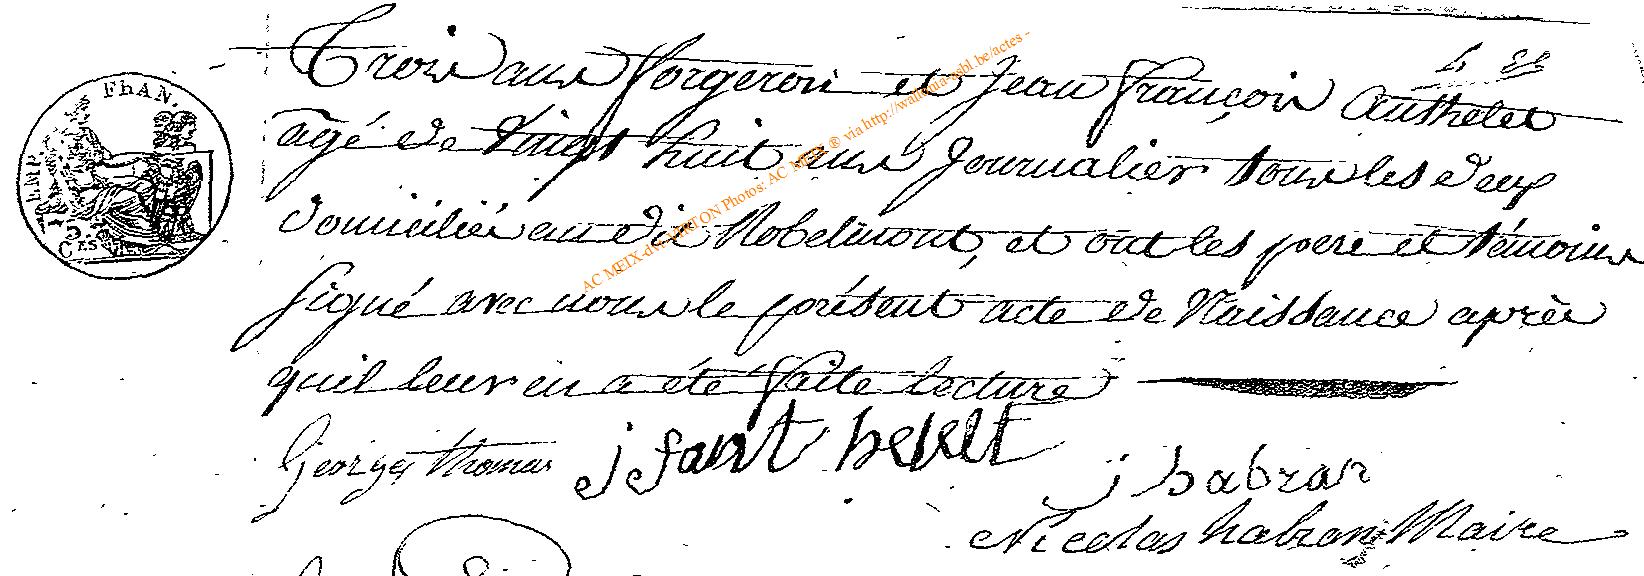 Trois ans forgeron et Jean françois authelet
agé de vingt huit ans Journalier tous les deux
domiciliés au dit Robelmont, et ont les pere et témoins
signé avec nous le présent acte de Naissance après
quil leur en a été faite lecture
Georges thomas j f aut helet
j habran
Nicolas habran Maire
EMP. FRAN.
AC MEIX-dvt-VIRTON Photos: AC MEIX ® via http://wallonia-asbl.be/actes -